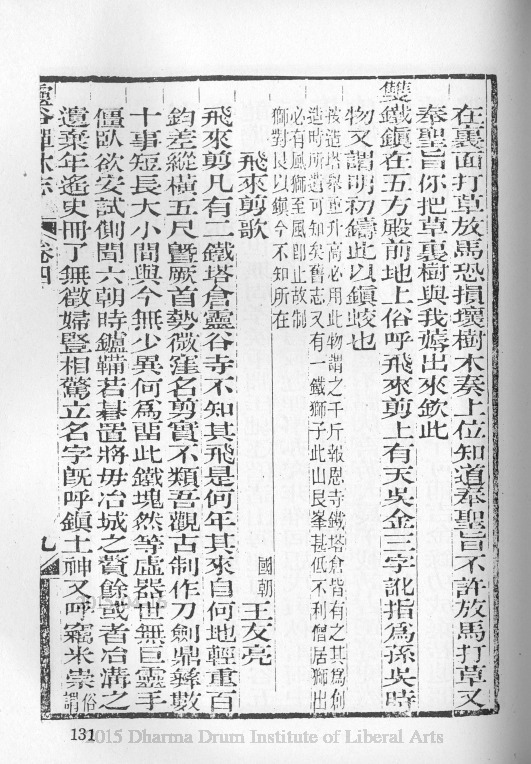 在裏面打草放馬恐損壞樹木奏上位知道奉聖旨不許放馬打草又
奉聖旨你把草裏樹與我薅出來欽此
雙鐵鎮在五方殿前地上俗呼飛來剪上有天吳金三字訛指爲孫吳時
物又謂明初鑄此以鎮蛟也
按造塔舉重升高必用此物謂之千斤報恩寺鐵塔倉皆有之其爲創
造時所遺可知矣舊志又有一鐵獅子此山艮峯甚低不利僧居獅出
必有風獅至風卽止故制
獅對艮以鎮今不知所在
飛來剪歌
國朝王友亮
飛來剪凡有二鐵塔倉靈谷寺不知其飛是何年其來自何地輕重百
鈞差縱橫五尺曁厥首勢微窪名剪實不類吾觀古制作刀劍鼎彝數
十事短長大小間與今無少異何爲畱此鐵塊然等虛器世無巨靈手
僵臥欲安試側聞六朝時鑪鞴若碁置將毋冶城之贅餘或者冶溝之
遺棄年遙史冊了無徵婦豎相驚立名字旣呼鎮土神又呼竊米祟俗
謂
靈谷禪林志
卷四
九
131
2015 Dharma Drum Institute of Liberal Arts